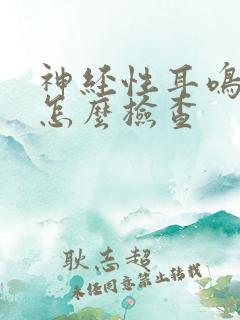 神经性耳鸣
怎麼檢查
耿志超
未经同意禁止转载